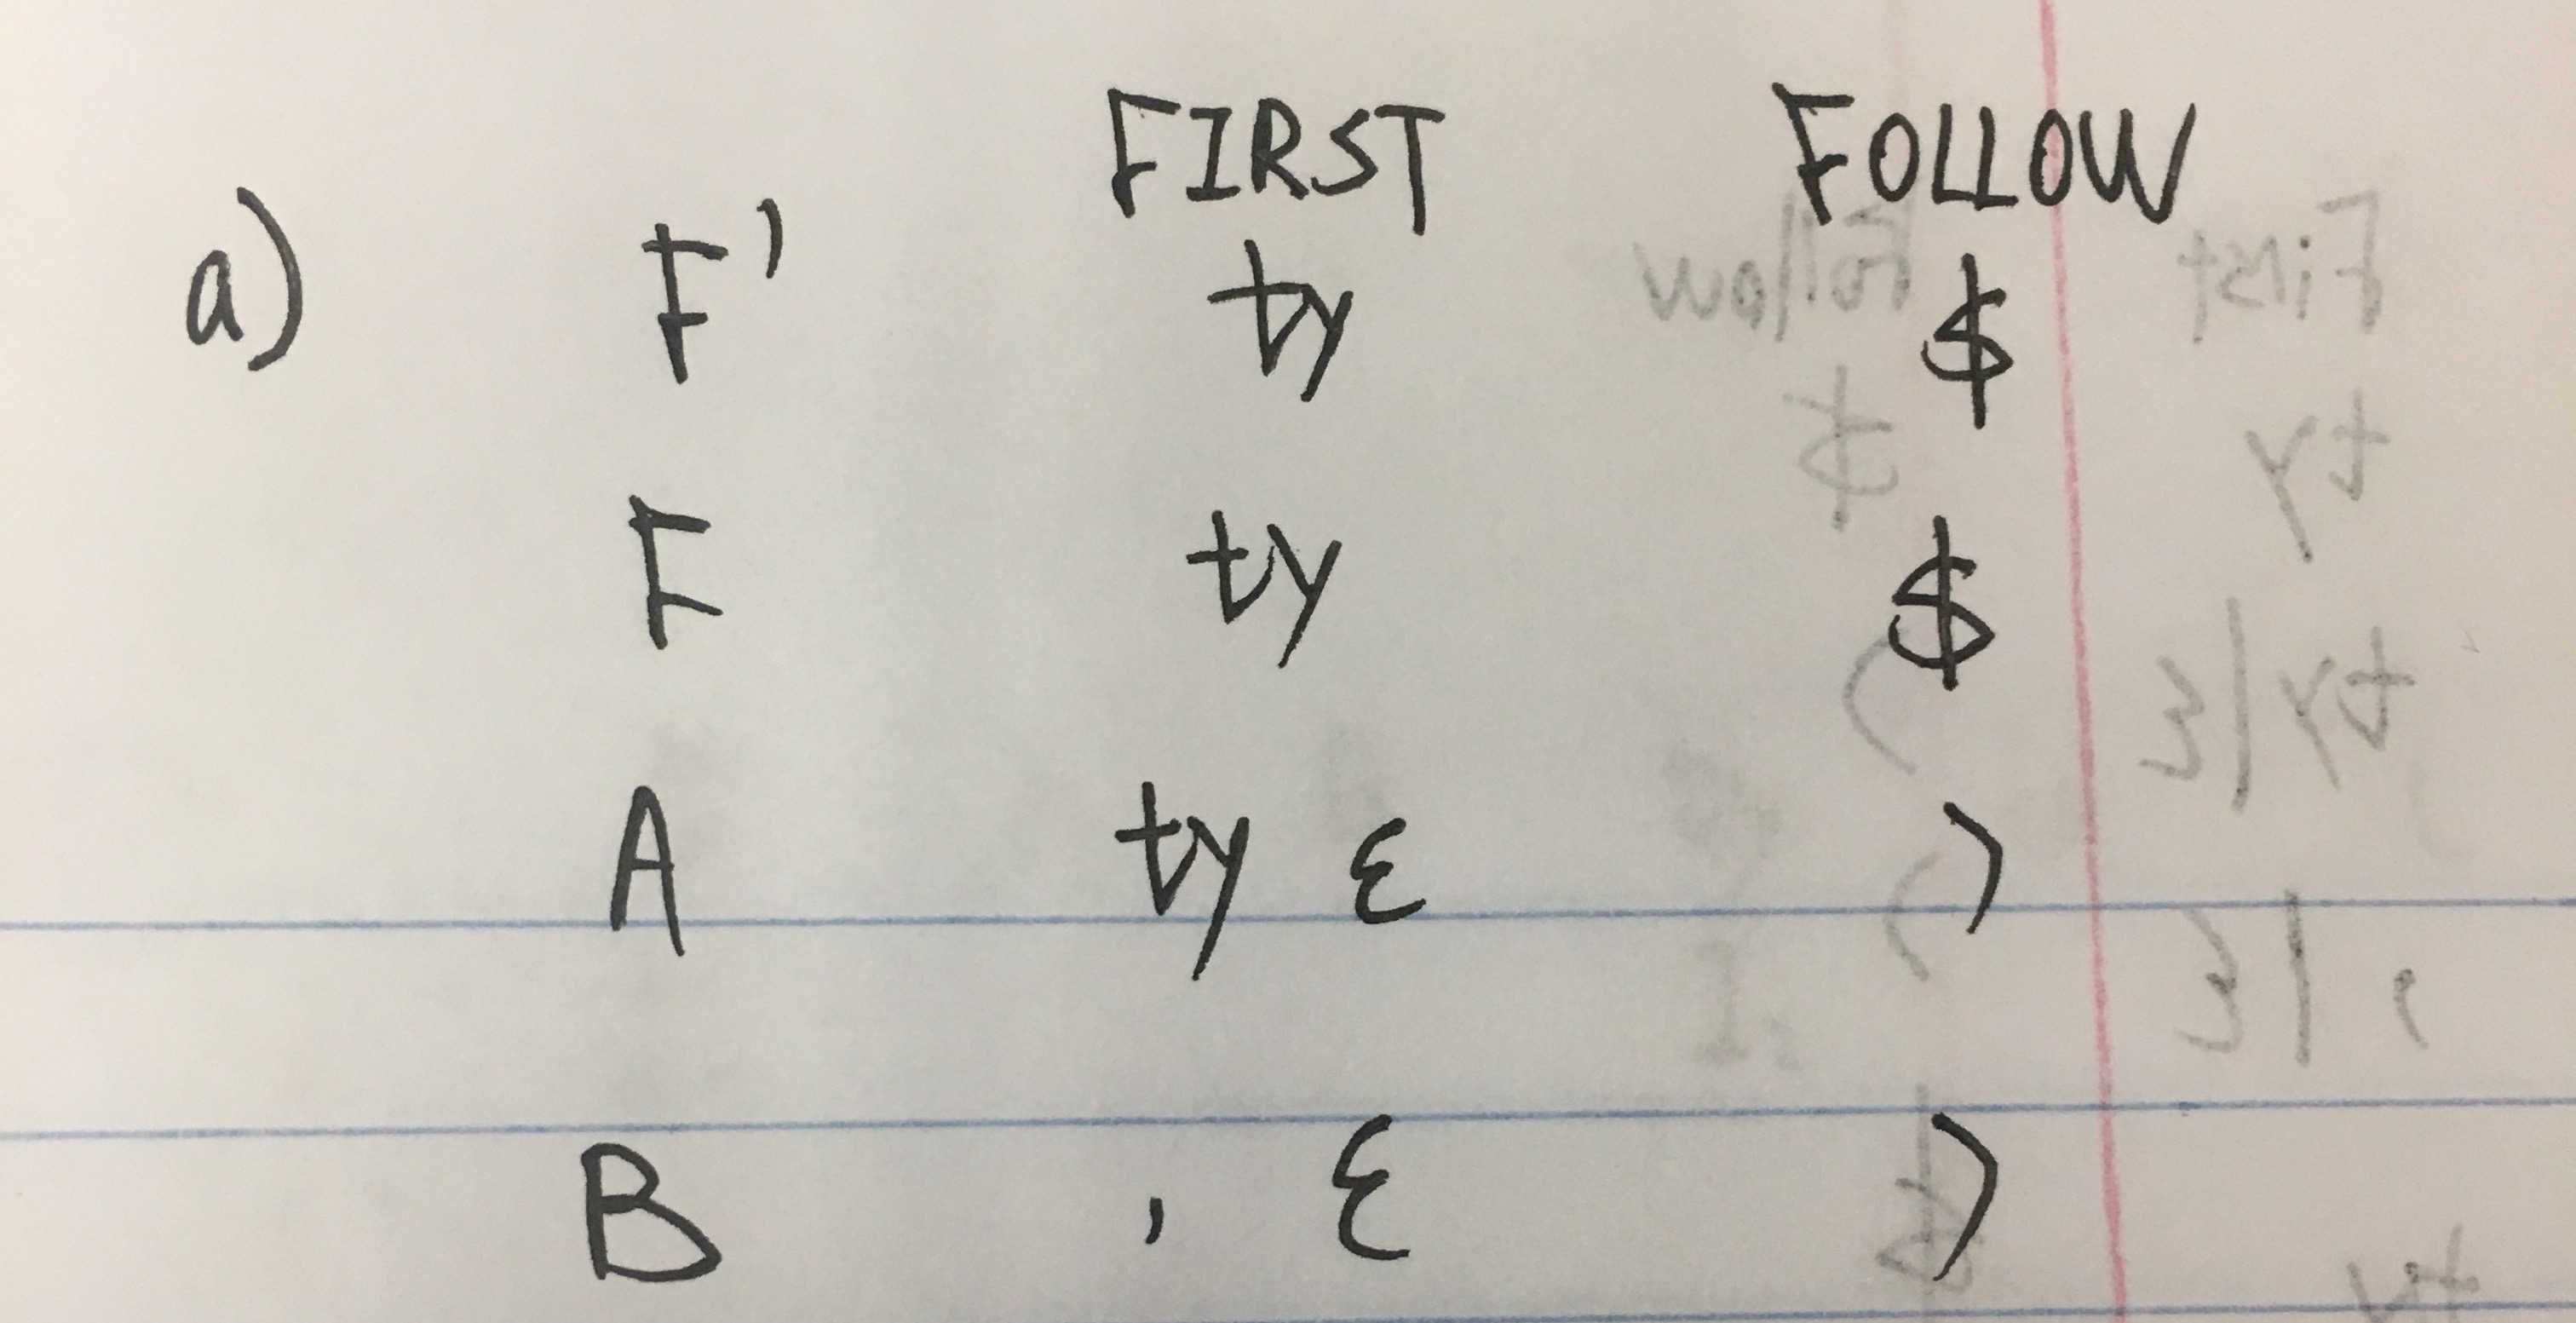 FIRST FOLLOW
a) F' ty $
F ty $
A ty ε )
B , ε )